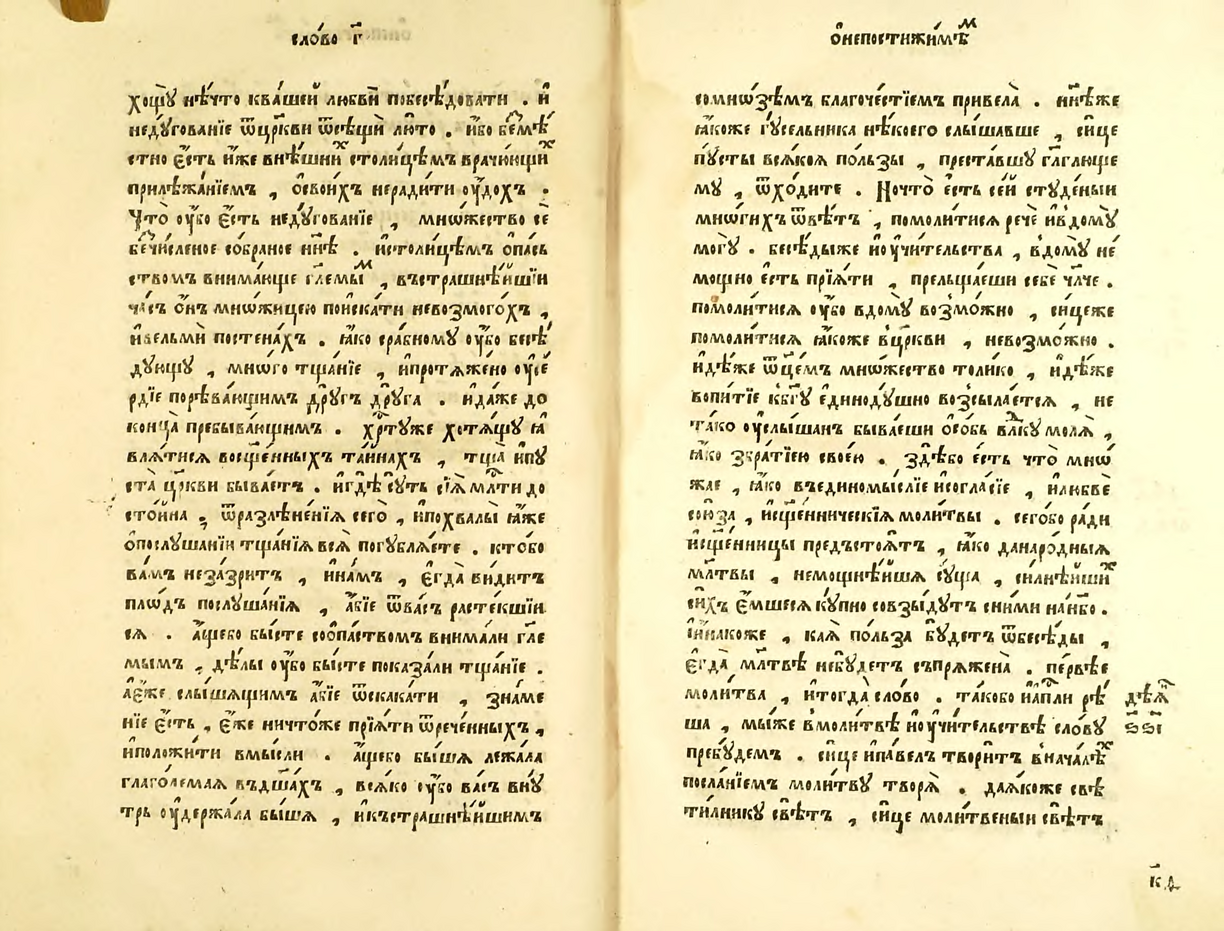 сло́во г҃
хощꙋ̀ нѣ́что квашей любвѝ побесѣ́довати . и҆
недꙋгова́нїе ѿцр҃кви ѿсѣщѝ лю́то . и҆́бо без̾мѣ́
стно є҆́сть и҆́же внѣ́шниⷯ столи́цѣмъ врачю́щиⷯ
прилѣжа́нїемъ , ѻ҆свои́хъ неради́ти ѹ҆́дохъ .
Что̀ ѹ҆́бо є҆́сть недꙋгова́нїе , мнѡ́жество се
бесчи́сленое со́браное нн҃ѣ . и҆столи́цѣмъ ѻ҆па́сь
ствомъ внима́юще гл҃емыⷨ , въстрашнѣ́йшїи
ча́съ ѻ҆́нъ мнѡ́жицею поиска́ти невозмого́хъ ,
и҆вельмѝ постена́хъ . ꙗ҆́ко сра́бномꙋ ѹ҆́бо бесѣ́
дꙋющꙋ , мнѡ́го тща́нїе , и҆протѧ́жено ѹ҆се́
рдїе порѣва́ющимъ дрꙋ́гъ дрꙋ́га . и҆да́же до
конца̀ пребыва́ющимъ . хр҃тꙋ́же хотѧ́щꙋ ꙗ҆
влѧ́тисѧ восщ҃е́нныхъ та́йнахъ , тща̀ и҆пꙋ
ста̀ цр҃кви быва́етъ . и҆гдѣ̀ сꙋ́ть сїѧ̀ мл҃ти до
сто́йна , ѿразлѣне́нїѧ сего̀ , и҆похвалы̀ ꙗ҆́же
ѻ҆послꙋша́нїи тща́нїѧ всѧ̀ погꙋблѧ́ете . кто́бо
ва́мъ неза́зритъ , и҆на́мъ , є҆гда̀ ви́дитъ
пло́дъ послꙋша́нїѧ , а҆́бїе ѿва́съ расте́кшїи
сѧ . а҆́щебо бы́сте соѻпа́ствомъ внима́ли гл҃е
мымъ , дѣ́лы ѹ҆́бо бы́сте показа́ли тща́нїе .
а҆є҆́же слы́шѧщимъ а҆́бїе ѿскака́ти , зна́ме
нїе є҆́сть , є҆́же ничто́же прїѧ́ти ѿрече́нныхъ ,
и҆положи́ти вмы́сли . а҆́щебо бы́шѧ лежа́ла
глаго́лемаѧ въдш҃а́хъ , всѧ́ко ѹ҆́бо ва́съ внꙋ
трь ѹ҆держа́ла бы́шѧ , и҆къстрашнѣ́йшимъ
ѻ҆непостижи́мѣⷨ
сомнѡ́зѣмъ благоче́стїемъ привела̀ . нн҃ѣже
ꙗ҆́коже гꙋсе́льника нѣ́коего слы́шавше , си́це
пꙋ́сты всѧ́коѧ по́льзы , преста́вшꙋ гл҃аглюще
мꙋ , ѿхо́дите . Ночто̀ є҆́сть се́й стꙋде́ныи
мнѡ́гихъ ѿвѣ́тъ , помоли́тисѧ речѐ и҆вдомꙋ̀
могꙋ̀ . бесѣ́дыже и҆ѹчи́тельства , вдо́мꙋ не́
мощно є҆́сть прїѧ́ти , прельща́еши себѐ чл҃че .
помоли́тисѧ ѹ҆́бо вдомꙋ̀ возмо́жно , си́цеже
помоли́тисѧ ꙗ҆́коже вцр҃кви , невозмо́жно .
и҆дѣ́же ѿц҃е́мъ мнѡ́жество толи́ко , и҆дѣ́же
вопи́тїе кбг҃ꙋ є҆динодꙋ́шно возсыла́етсѧ , не
та́ко ѹ҆слы́шанъ быва́еши ѻ҆со́бь влⷣкꙋ молѧ̀ ,
ꙗ҆́ко збра́тїею свое́ю . здѣ́бо є҆́сть что̀ мнѡ́
жае , ꙗ҆́ко въединомы́слїе и҆согла́сїе , и҆любвѐ
сою́за , и҆сщ҃е́нническїѧ моли́твы . сегѡ́бо ра́ди
и҆сщ҃е́нницы предъстоѧ́тъ , ꙗ҆́ко данаро́дныѧ
мл҃твы , немощнѣ́йшѧ сꙋ́ща , силнѣ́йшиⷯ
си́хъ є҆́мшесѧ кꙋ́пно совзы́дꙋтъ сни́ми нан҃бо .
И҆и҆на́коже , ка́ѧ по́льза бꙋ́детъ ѿбесѣ́ды ,
є҆гда̀ мл҃твѣ небꙋ́детъ съпрѧже́на . пе́рвѣе
моли́тва , и҆тогда̀ сло́во . та́кобо и҆ап҃ли рѣ́
ша , мы́же вмоли́твѣ и҆ѹчи́тельствѣ сло́вꙋ
пребꙋ́демъ . си́це и҆па́велъ твори́тъ внача́лѣⷯ
посла́нїемъ моли́твꙋ творѧ̀ . даꙗ҆́коже свѣ
ти́лникꙋ свѣ́тъ , си́це моли́твеныи свѣ́тъ
дѣѧ̑
к҃д